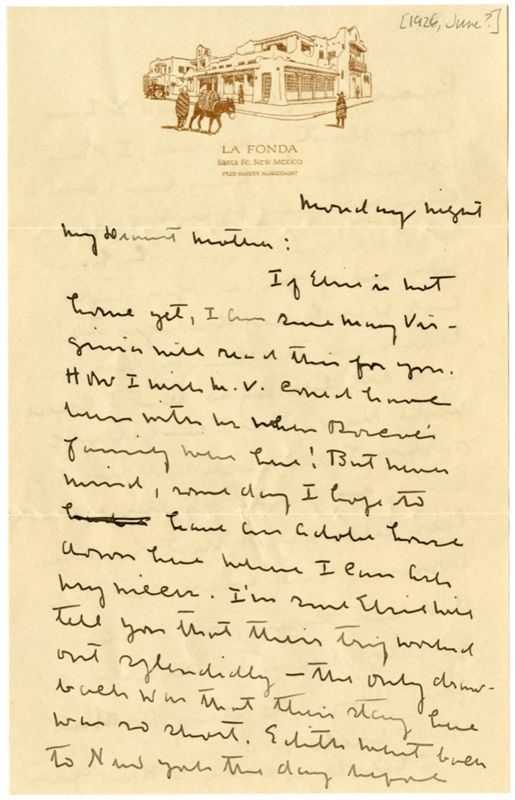 [1926, June?]
LA FONDA
Santa Fe, New Mexico
FRED HARVEY MANAGEMENT
Monday night
My Dearest Mother:
If Elsie is not
home yet, I am sure Mary Vir-
ginia will read this for you.
How I wish M.V. could have
been with us when Roscoe's
family were here! But never
mind, some day I hope to
have an adobe house
down here where I can ask
my nieces. I'm sure Elsie will
tell you that their trip worked
out splendidly — the only draw-
back was that their stay here
was so short. Edith went back
to New York the day before